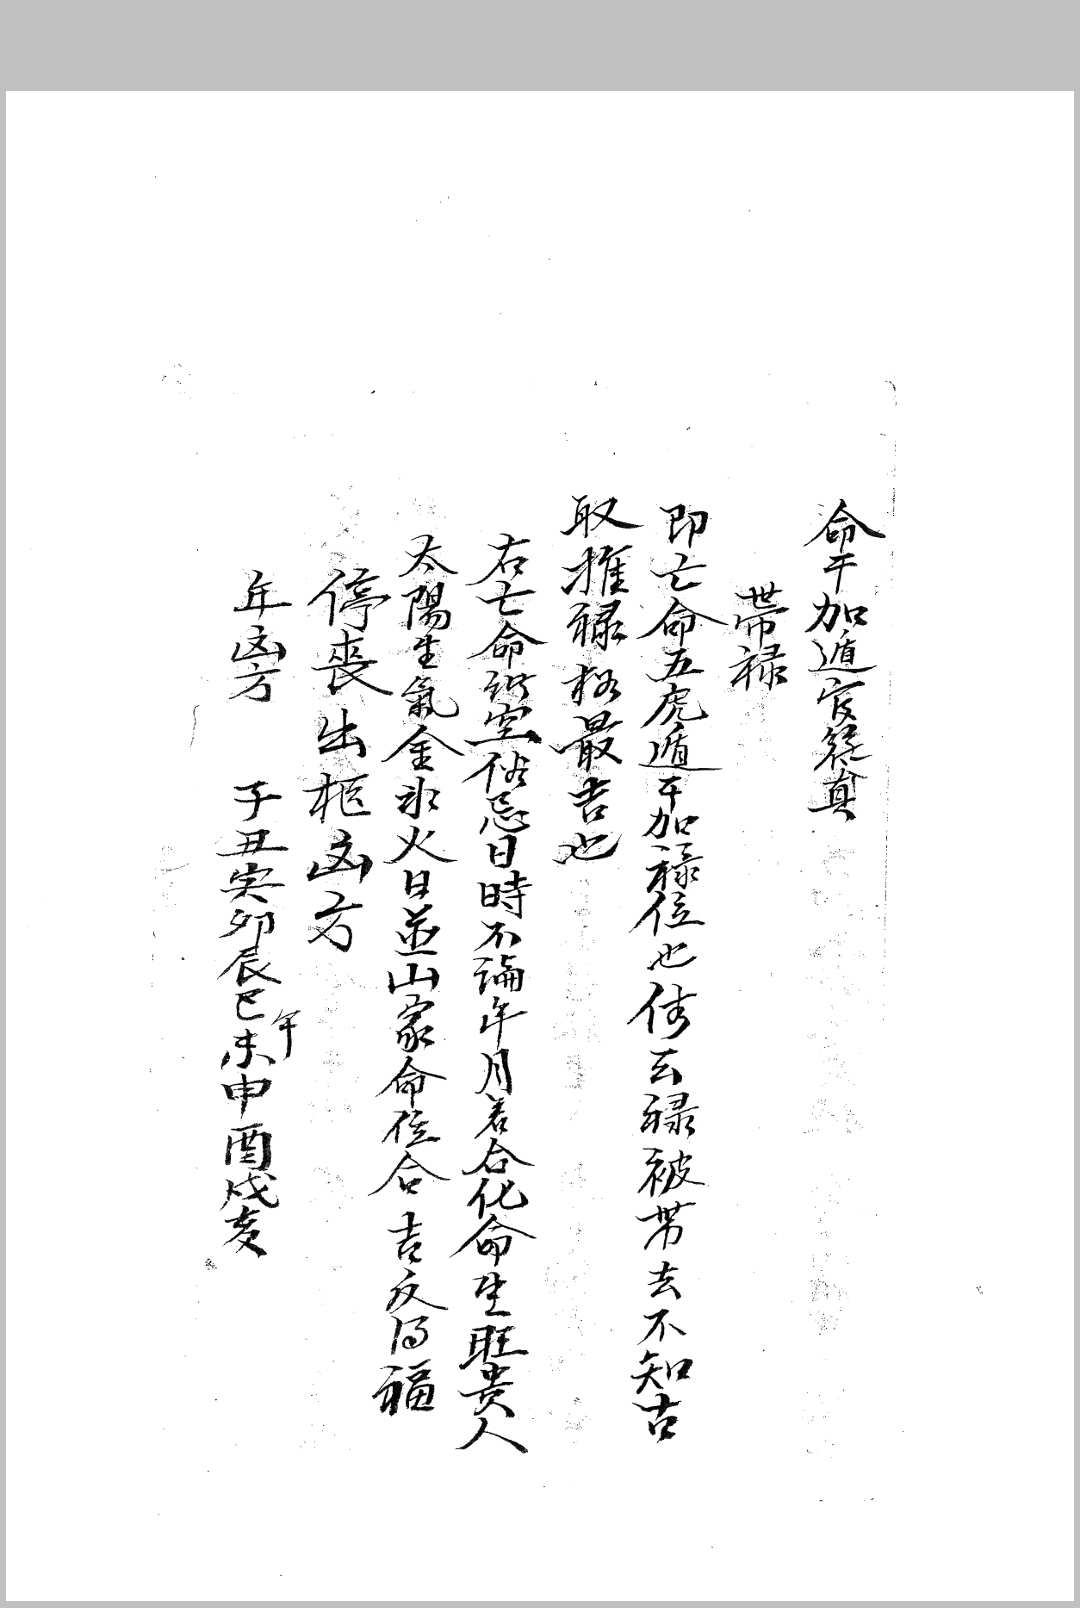 命干加遁官符真
帶禄
即亡命五虎遁干加禄位也俗云禄被帶去不知古
取推禄格最吉也
右亡命訴空俗忌日時不論年月若合化命生旺贵人
太陽生氣金水火日並山家命位合吉反得福
停喪出柩凶方
年凶方 子丑寅卯辰巳午未申酉戌亥